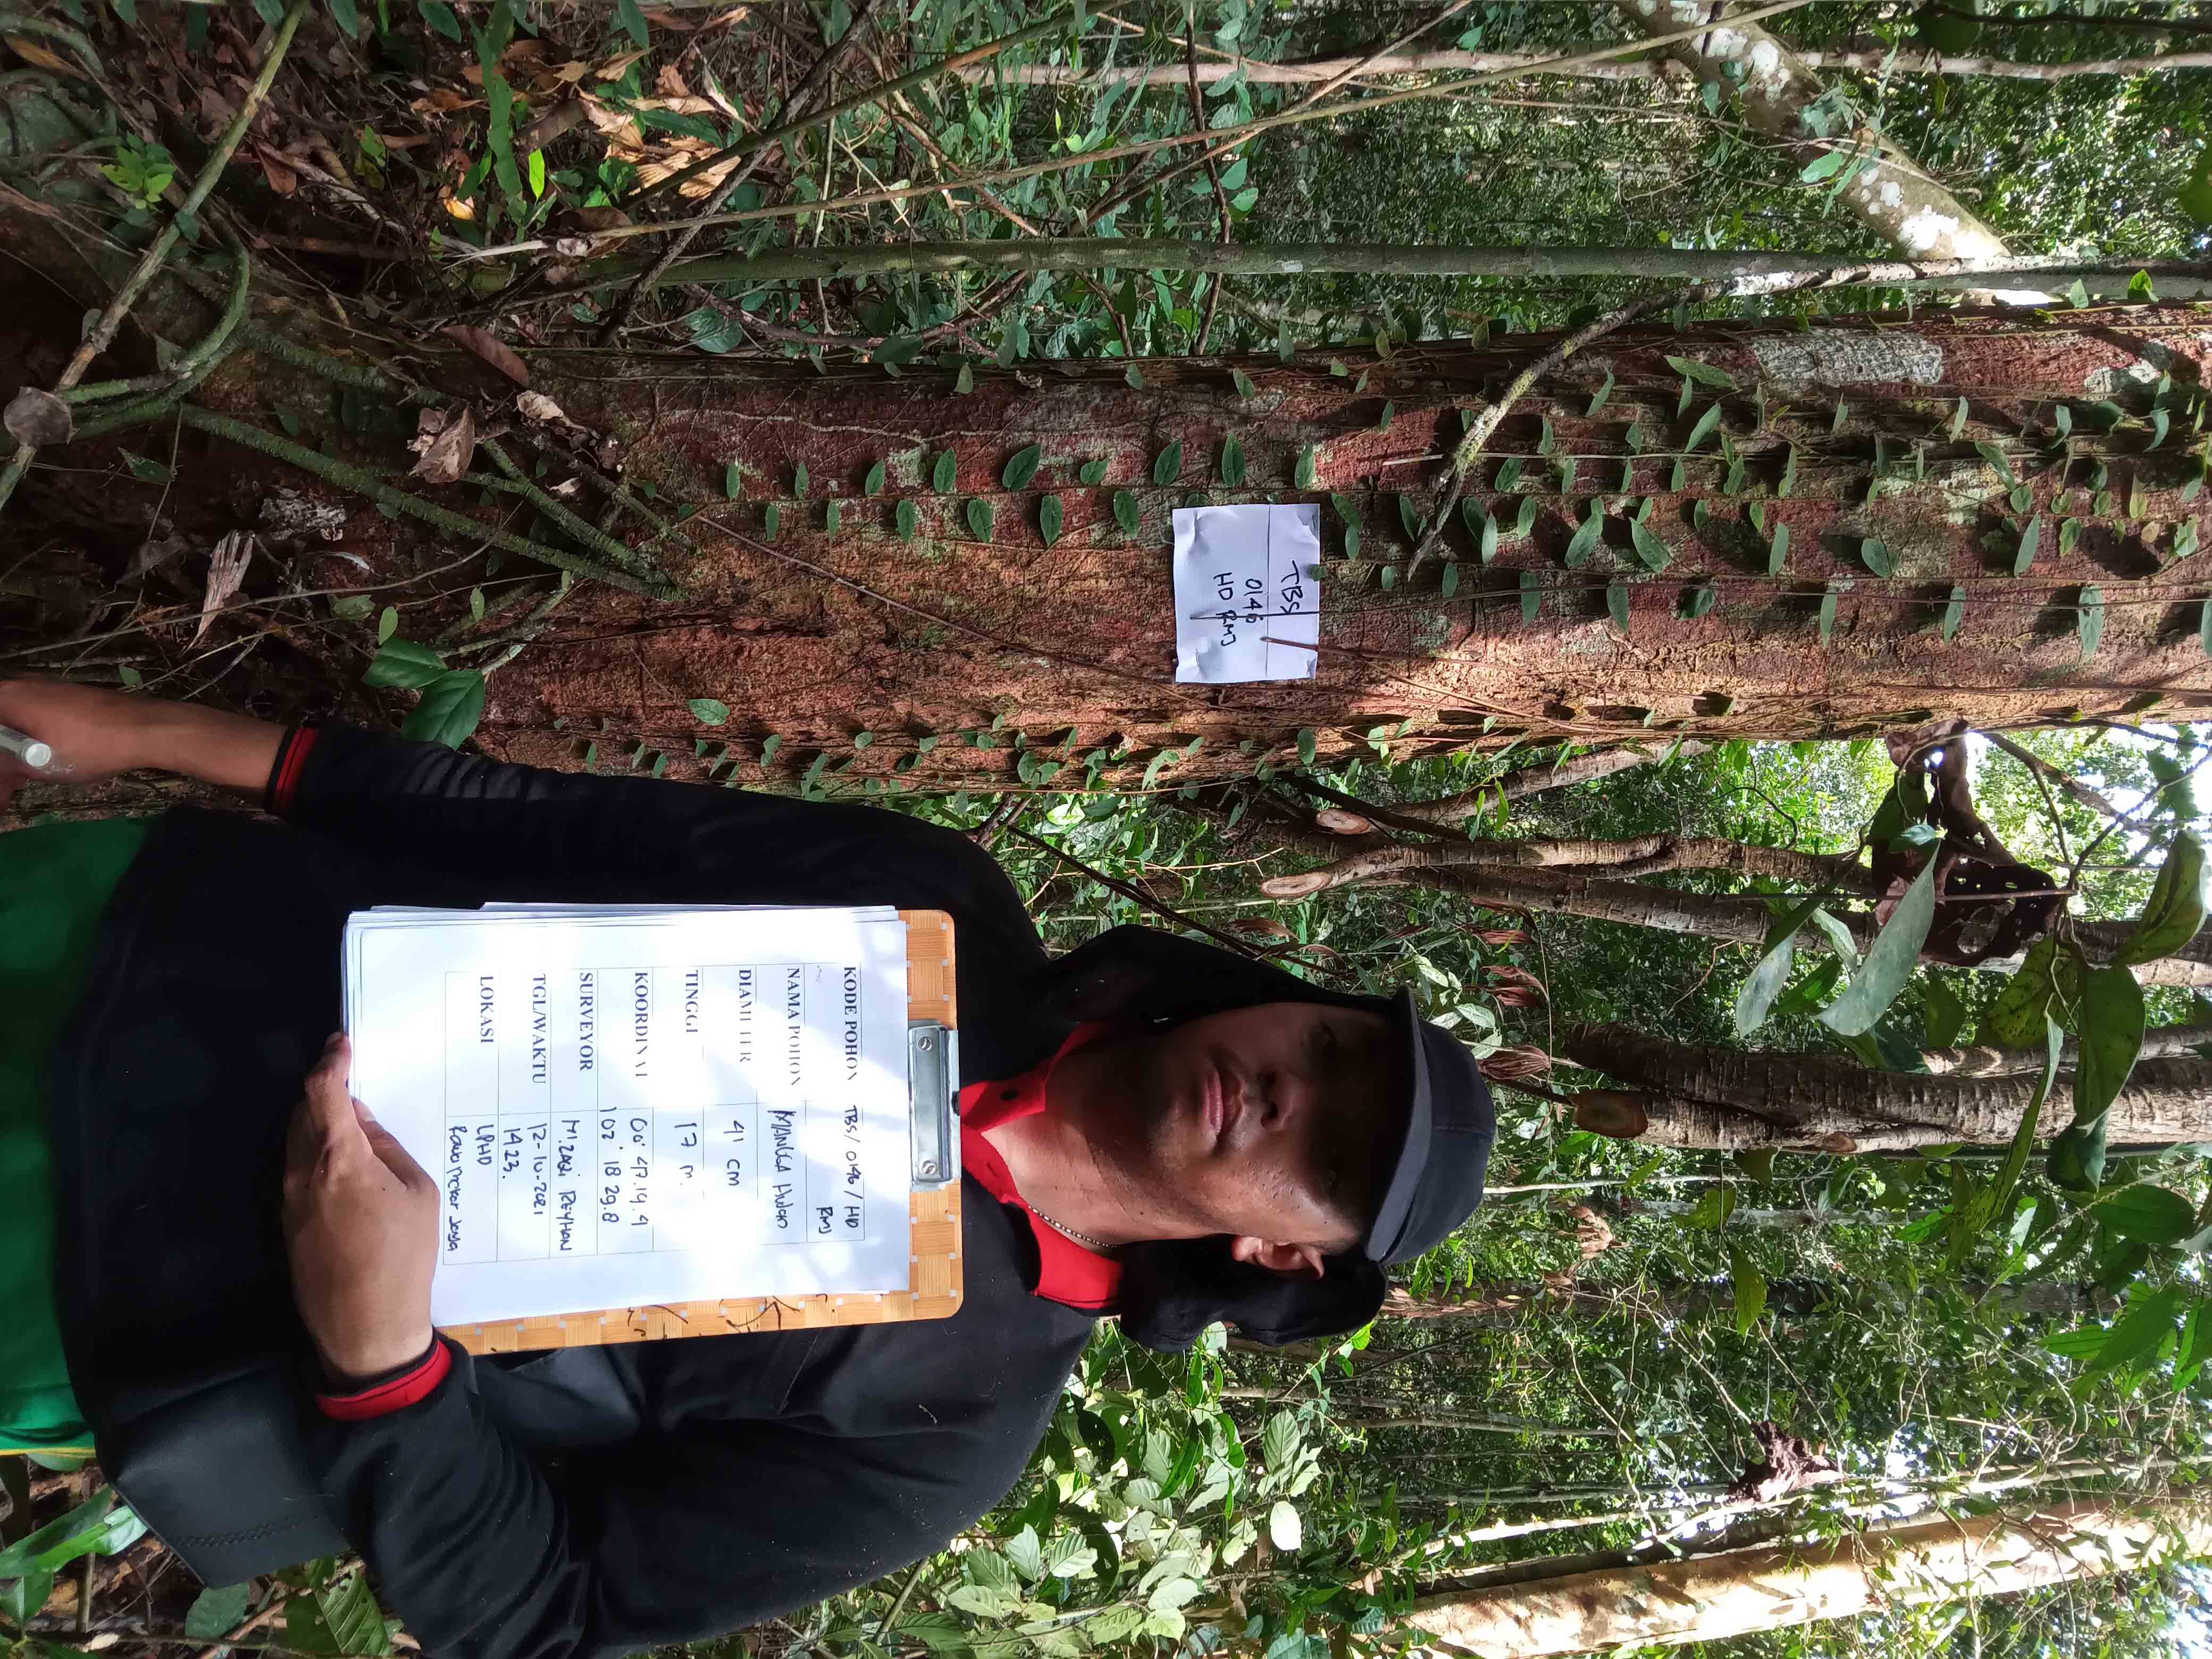 TBS
0146
HD RMJ
KODE POHON TBS/ 0146 / HD
RMJ
NAMA POHON MANGGA HUTAN
DIAMETER 41 cm
TINGGI 17 m.
KOORDINAT 00° 47.19.4
102° 18 29.8
SURVEYOR REYHAN
TGL/WAKTU 12-10-2021
1423.
LOKASI LPHD
Rawa Mekar Jaya